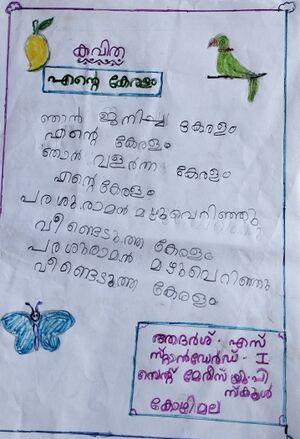 കവിത
എന്റെ കേരളം
ഞാൻ ജനിച്ച കേരളം
എന്റെ കേരളം
ഞാൻ വളർന്ന കേരളം
എന്റെ കേരളം
പരശുരാമൻ മഴുവെറിഞ്ഞു
വീണ്ടെടുത്ത കേരളം
പരശുരാമൻ മഴുവെറിഞ്ഞു
വീണ്ടെടുത്ത കേരളം
ആദർശ്. എസ്
സ്റ്റാൻഡേർഡ് - I
സെന്റ് മേരീസ് യു.പി
സ്കൂൾ
കോഴിമല